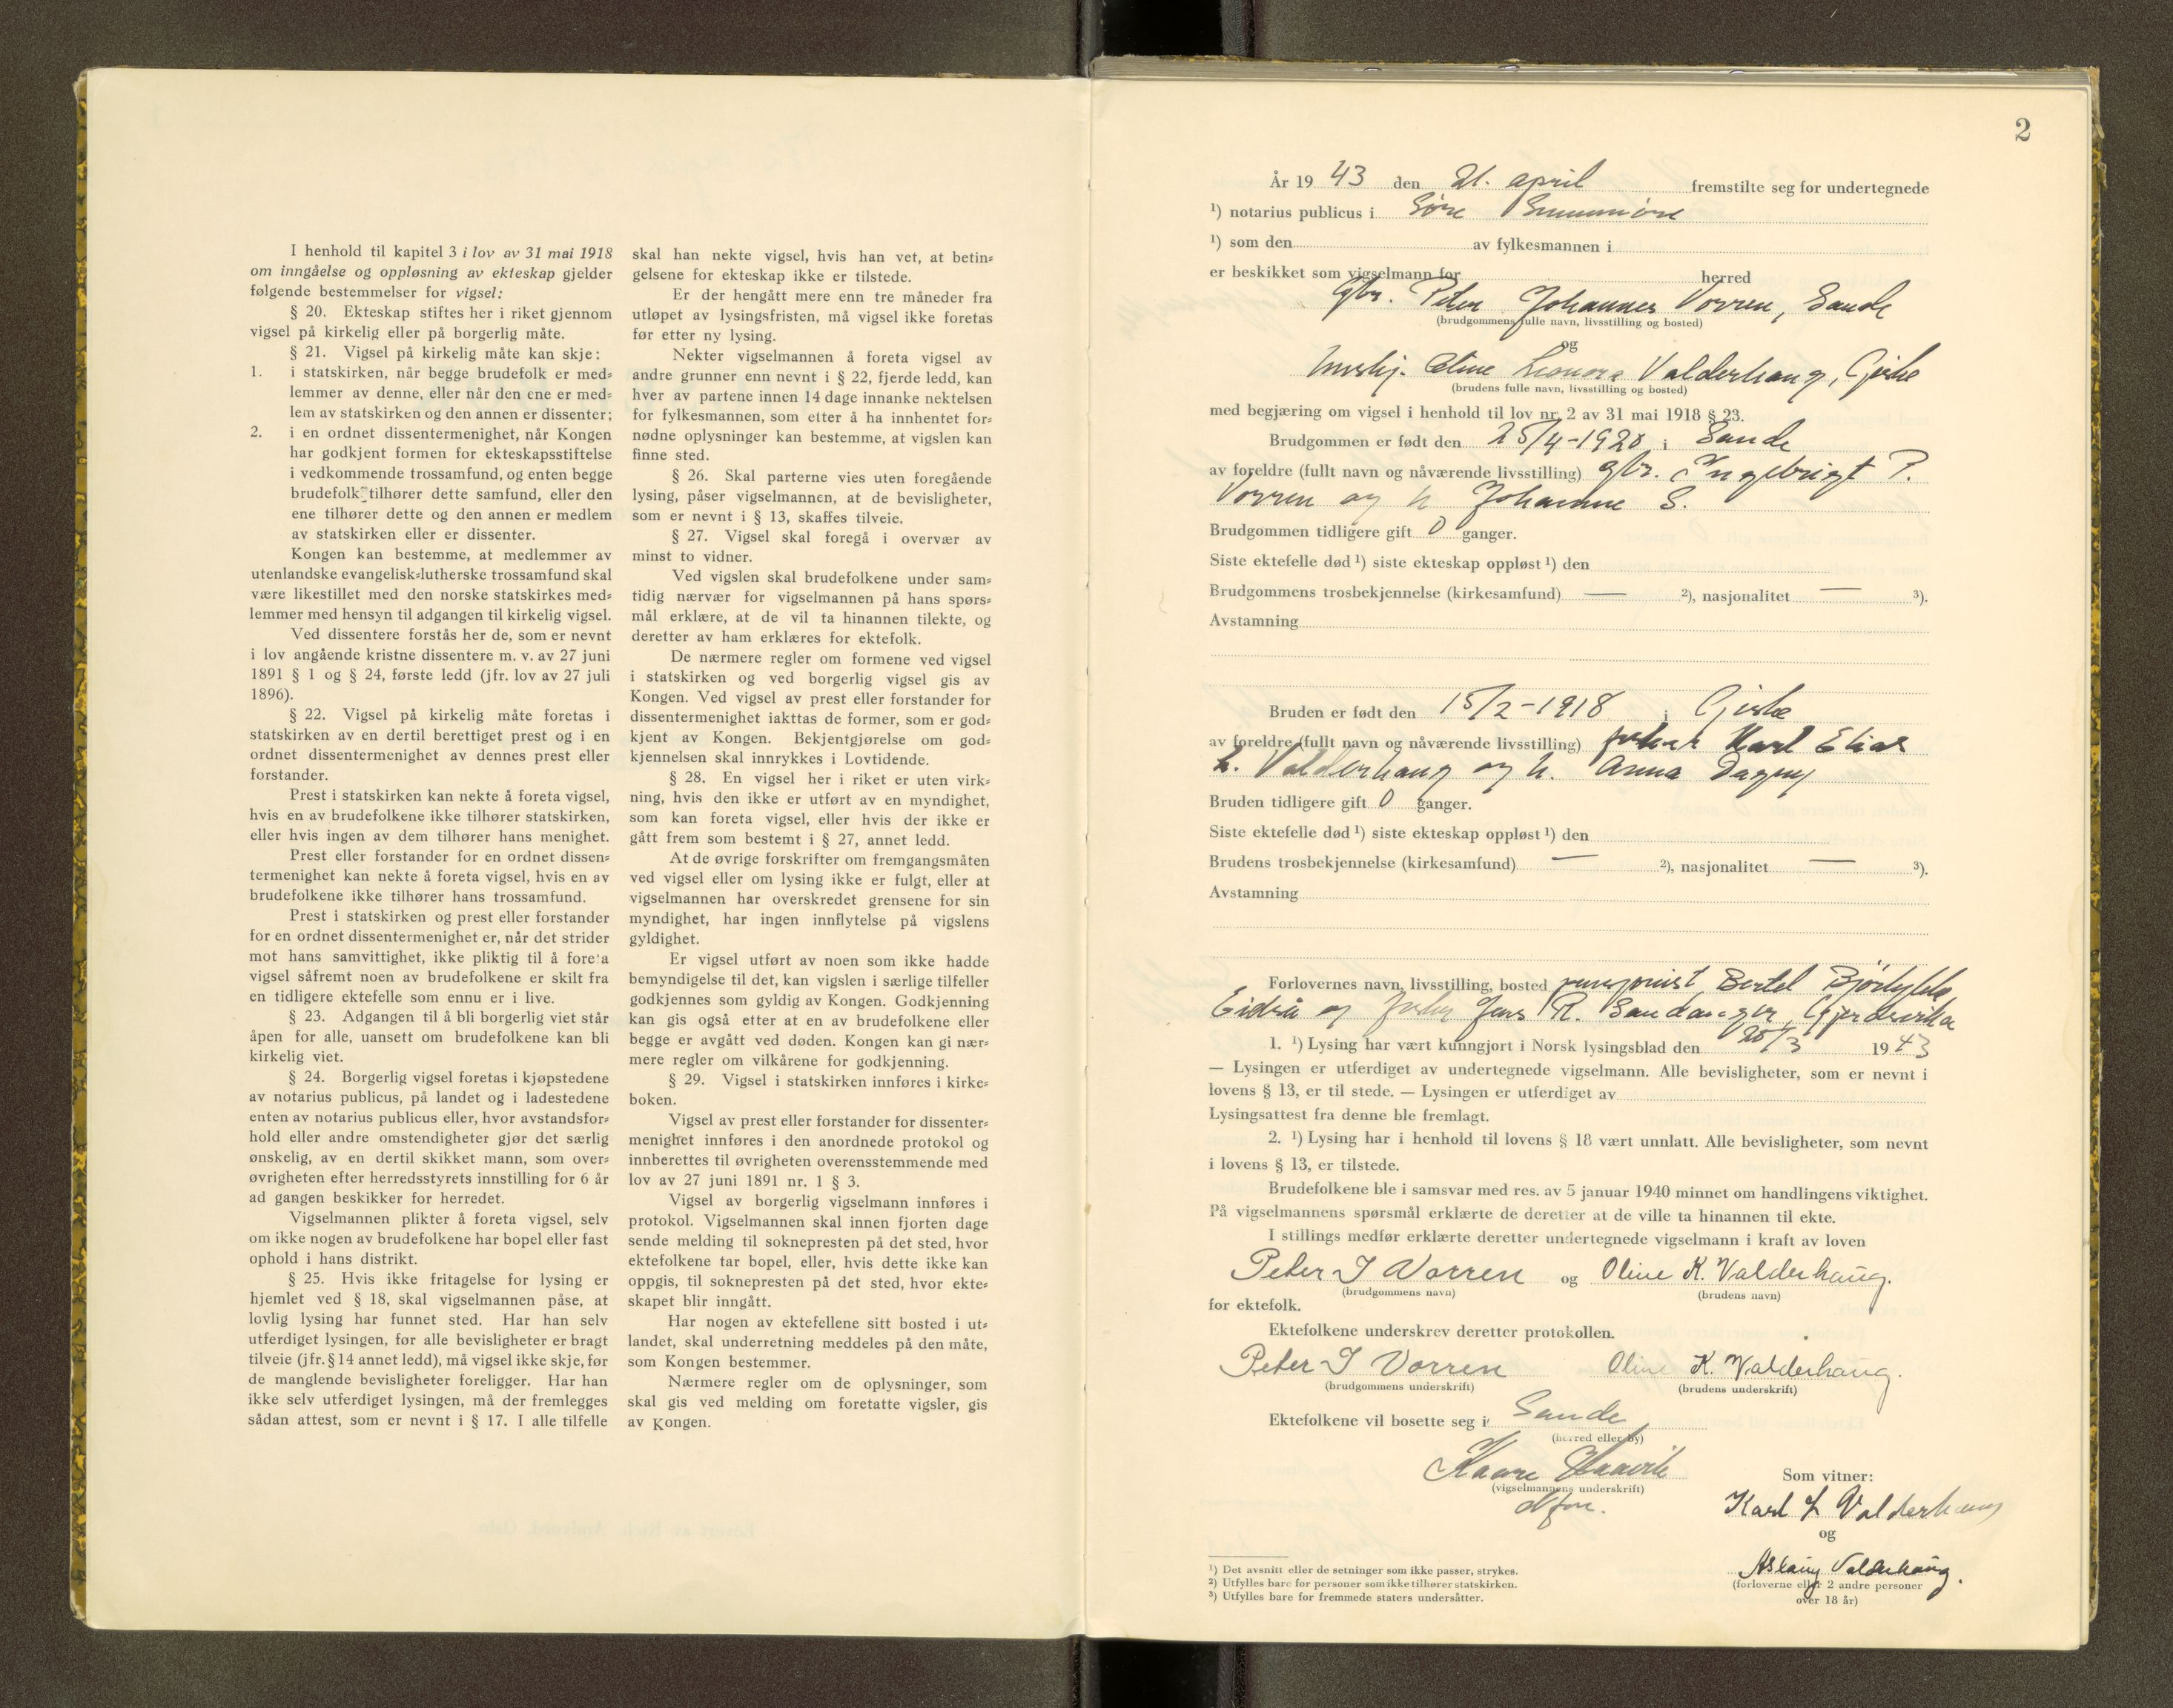 I henhold til kapitel 3 i lov av 31 mai 1918
om inngåelse og oppløsning av ekteskap gjelder
følgende bestemmelser for vigsel:
§ 20. Ekteskap stiftes her i riket gjennom
vigsel på kirkelig eller på borgerlig måte.
§ 21. Vigsel på kirkelig måte kan skje:
1. i statskirken, når begge brudefolk er med=
lemmer av denne, eller når den ene er med=
lem av statskirken og den annen er dissenter;
2. i en ordnet dissentermenighet, når Kongen
har godkjent formen for ekteskapsstiftelse
i vedkommende trossamfund, og enten begge
brudefolk tilhører dette samfund, eller den
ene tilhører dette og den annen er medlem
av statskirken eller er dissenter.
Kongen kan bestemme, at medlemmer av
utenlandske evangelisk=lutherske trossamfund skal
være likestillet med den norske statskirkes med=
lemmer med hensyn til adgangen til kirkelig vigsel.
Ved dissentere forstås her de, som er nevnt
i lov angående kristne dissentere m. v. av 27 juni
1891 § 1 og § 24, første ledd (jfr. lov av 27 juli
1896).
§ 22. Vigsel på kirkelig måte foretas i
statskirken av en dertil berettiget prest og i en
ordnet dissentermenighet av dennes prest eller
forstander.
Prest i statskirken kan nekte å foreta vigsel,
hvis en av brudefolkene ikke tilhører statskirken,
eller hvis ingen av dem tilhører hans menighet.
Prest eller forstander for en ordnet dissen=
termenighet kan nekte å foreta vigsel, hvis en av
brudefolkene ikke tilhører hans trossamfund.
Prest i statskirken og prest eller forstander
for en ordnet dissentermenighet er, når det strider
mot hans samvittighet, ikke pliktig til å foreta
vigsel såfremt noen av brudefolkene er skilt fra
en tidligere ektefelle som ennu er i live.
§ 23. Adgangen til å bli borgerlig viet står
åpen for alle, uansett om brudefolkene kan bli
kirkelig viet.
§ 24. Borgerlig vigsel foretas i kjøpstedene
av notarius publicus, på landet og i ladestedene
enten av notarius publicus eller, hvor avstandsfor=
hold eller andre omstendigheter gjør det særlig
ønskelig, av en dertil skikket mann, som over=
øvrigheten efter herredsstyrets innstilling for 6 år
ad gangen beskikker for herredet.
Vigselmannen plikter å foreta vigsel, selv
om ikke nogen av brudefolkene har bopel eller fast
ophold i hans distrikt.
§ 25. Hvis ikke fritagelse for lysing er
hjemlet ved § 18, skal vigselmannen påse, at
lovlig lysing har funnet sted. Har han selv
utferdiget lysingen, før alle bevisligheter er bragt
tilveie (jfr. § 14 annet ledd), må vigsel ikke skje, før
de manglende bevisligheter foreligger. Har han
ikke selv utferdiget lysingen, må der fremlegges
sådan attest, som er nevnt i § 17. I alle tilfelle
skal han nekte vigsel, hvis han vet, at betin=
gelsene for ekteskap ikke er tilstede.
Er der hengått mere enn tre måneder fra
utløpet av lysingsfristen, må vigsel ikke foretas
før etter ny lysing.
Nekter vigselmannen å foreta vigsel av
andre grunner enn nevnt i § 22, fjerde ledd, kan
hver av partene innen 14 dage innanke nektelsen
for fylkesmannen, som etter å ha innhentet for=
nødne oplysninger kan bestemme, at vigslen kan
finne sted.
§ 26. Skal parterne vies uten foregående
lysing, påser vigselmannen, at de bevisligheter,
som er nevnt i § 13, skaffes tilveie.
§ 27. Vigsel skal foregå i overvær av
minst to vidner.
Ved vigslen skal brudefolkene under sam=
tidig nærvær for vigselmannen på hans spørs=
mål erklære, at de vil ta hinannen tilekte, og
deretter av ham erklæres for ektefolk.
De nærmere regler om formene ved vigsel
i statskirken og ved borgerlig vigsel gis av
Kongen. Ved vigsel av prest eller forstander for
dissentermenighet iakttas de former, som er god=
kjent av Kongen. Bekjentgjørelse om god=
kjennelsen skal innrykkes i Lovtidende.
§ 28. En vigsel her i riket er uten virk=
ning, hvis den ikke er utført av en myndighet,
som kan foreta vigsel, eller hvis der ikke er
gått frem som bestemt i § 27, annet ledd.
At de øvrige forskrifter om fremgangsmåten
ved vigsel eller om lysing ikke er fulgt, eller at
vigselmannen har overskredet grensene for sin
myndighet, har ingen innflytelse på vigslens
gyldighet.
Er vigsel utført av noen som ikke hadde
bemyndigelse til det, kan vigslen i særlige tilfeller
godkjennes som gyldig av Kongen. Godkjenning
kan gis også etter at en av brudefolkene eller
begge er avgått ved døden. Kongen kan gi nær=
mere regler om vilkårene for godkjenning.
§ 29. Vigsel i statskirken innføres i kirke=
boken.
Vigsel av prest eller forstander for dissenter=
menighet innføres i den anordnede protokol og
innberettes til øvrigheten overensstemmende med
lov av 27 juni 1891 nr. 1 § 3.
Vigsel av borgerlig vigselmann innføres i
protokol. Vigselmannen skal innen fjorten dage
sende melding til soknepresten på det sted, hvor
ektefolkene tar bopel, eller, hvis dette ikke kan
oppgis, til soknepresten på det sted, hvor ekte=
skapet blir inngått.
Har nogen av ektefellene sitt bosted i ut=
landet, skal underretning meddeles på den måte,
som Kongen bestemmer.
Nærmere regler om de oplysninger, som
skal gis ved melding om foretatte vigsler, gis
av Kongen.
2
År 1943 den 21. april fremstilte seg for undertegnede
¹) notarius publicus i Søre Sunnmøre
¹) som den av fylkesmannen i
er beskikket som vigselmann for herred
Gbr. Peter Johannes Vorren, Sande
(brudgommens fulle navn, livsstilling og bosted)
og
Oline Leonora Valderhaug, Giske
(brudens fulle navn, livsstilling og bosted)
med begjæring om vigsel i henhold til lov nr. 2 av 31 mai 1918 § 23.
Brudgommen er født den 25/4-1920 i Sande
av foreldre (fullt navn og nåværende livsstilling) gbr. Ingebrigt P.
Vorren og h. Johanne S.
Brudgommen tidligere gift 0 ganger.
Siste ektefelle død ¹) siste ekteskap oppløst ¹) den
Brudgommens trosbekjennelse (kirkesamfund) — ²), nasjonalitet — ³).
Avstamning
Bruden er født den 15/2-1918 i Giske
av foreldre (fullt navn og nåværende livsstilling) fisker Karl Elias
L. Valderhaug og h. Anna Dagny
Bruden tidligere gift 0 ganger.
Siste ektefelle død ¹) siste ekteskap oppløst ¹) den
Brudens trosbekjennelse (kirkesamfund) — ²), nasjonalitet — ³).
Avstamning
Forlovernes navn, livsstilling, bosted pensjonist Bertel
Eidså og Jens R. Sandanger, Gjerdsvika
1. ¹) Lysing har vært kunngjort i Norsk lysingsblad den 20/3 1943
— Lysingen er utferdiget av undertegnede vigselmann. Alle bevisligheter, som er nevnt i
lovens § 13, er til stede. — Lysingen er utferdiget av
Lysingsattest fra denne ble fremlagt.
2. ¹) Lysing har i henhold til lovens § 18 vært unnlatt. Alle bevisligheter, som nevnt
i lovens § 13, er tilstede.
Brudefolkene ble i samsvar med res. av 5 januar 1940 minnet om handlingens viktighet.
På vigselmannens spørsmål erklærte de deretter at de ville ta hinannen til ekte.
I stillings medfør erklærte deretter undertegnede vigselmann i kraft av loven
Peter I Vorren og Oline K. Valderhaug.
(brudgommens navn) (brudens navn)
for ektefolk.
Ektefolkene underskrev deretter protokollen.
Peter I Vorren Oline K. Valderhaug.
(brudgommens underskrift) (brudens underskrift)
Ektefolkene vil bosette seg i Sande,
(herred eller by)
Kaare
(vigselmannens underskrift)
Som vitner:
Karl L Valderhaug
og
Aslaug Valderhaug.
(forloverne eller 2 andre personer
over 18 år)
¹) Det avsnitt eller de setninger som ikke passer, strykes.
²) Utfylles bare for personer som ikke tilhører statskirken.
³) Utfylles bare for fremmede staters undersåtter.